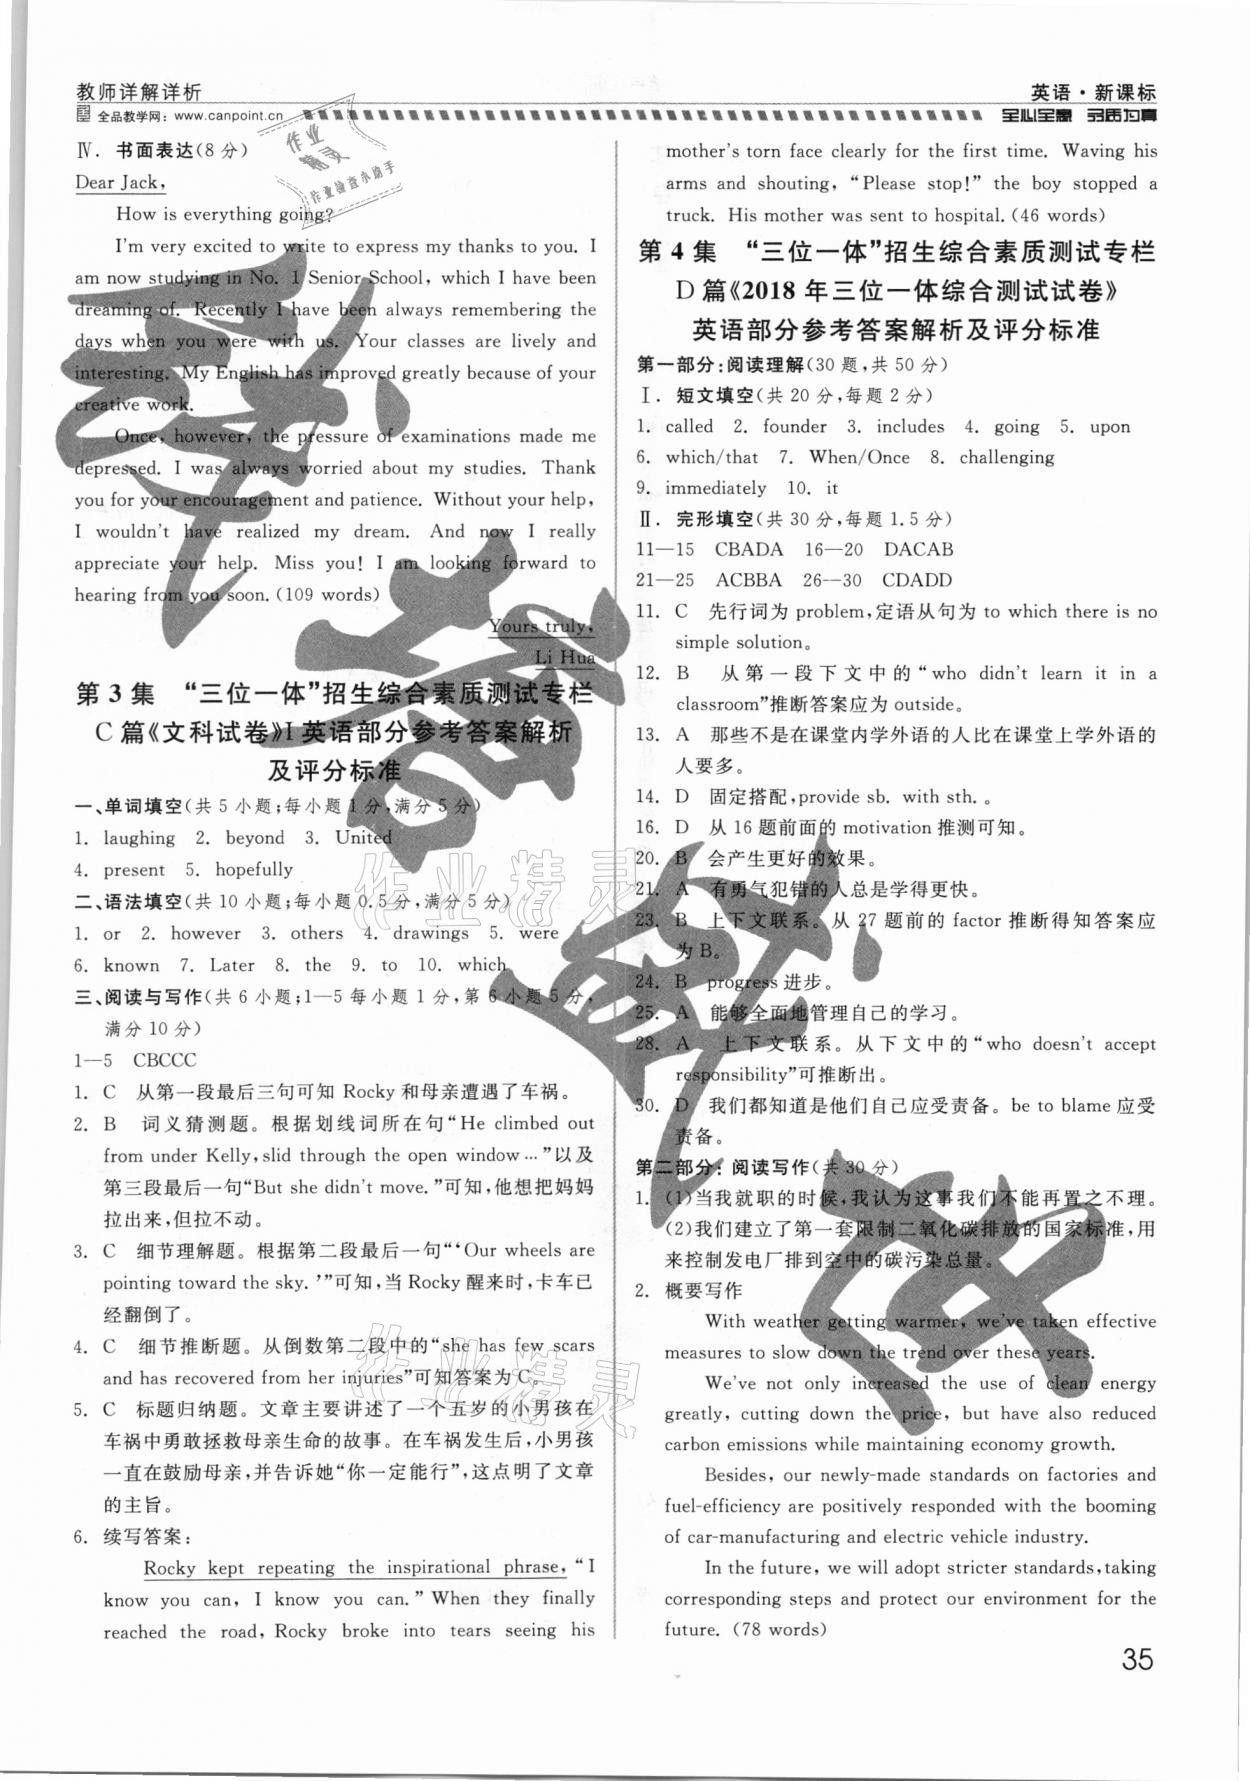 教师详解详析
英语·新课标
全品教学网：www.canpoint.cn
全心全意 字质为真
Ⅳ. 书面表达(8分)
Dear Jack,
How is everything going?
I'm very excited to write to express my thanks to you. I
am now studying in No. 1 Senior School, which I have been
dreaming of. Recently I have been always remembering the
days when you were with us. Your classes are lively and
interesting. My English has improved greatly because of your
creative work.
Once, however, the pressure of examinations made me
depressed. I was always worried about my studies. Thank
you for your encouragement and patience. Without your help,
I wouldn't have realized my dream. And now I really
appreciate your help. Miss you! I am looking forward to
hearing from you soon. (109 words)
Yours truly,
Li Hua
第3集 “三位一体”招生综合素质测试专栏
C篇《文科试卷》I英语部分参考答案解析
及评分标准
一、单词填空(共5小题;每小题1分,满分5分)
1. laughing 2. beyond 3. United
4. present 5. hopefully
二、语法填空(共10小题;每小题0.5分,满分5分)
1. or 2. however 3. others 4. drawings 5. were
6. known 7. Later 8. the 9. to 10. which
三、阅读与写作(共6小题;1—5每小题1分,第6小题5分,
满分10分)
1—5 CBCCC
1. C 从第一段最后三句可知Rocky和母亲遭遇了车祸。
2. B 词义猜测题。根据划线词所在句“He climbed out
from under Kelly, slid through the open window…”以及
第三段最后一句“But she didn't move.”可知,他想把妈妈
拉出来,但拉不动。
3. C 细节理解题。根据第二段最后一句“‘Our wheels are
pointing toward the sky.’”可知,当Rocky醒来时,卡车已
经翻倒了。
4. C 细节推断题。从倒数第二段中的“she has few scars
and has recovered from her injuries”可知答案为C。
5. C 标题归纳题。文章主要讲述了一个五岁的小男孩在
车祸中勇敢拯救母亲生命的故事。在车祸发生后,小男孩
一直在鼓励母亲,并告诉她“你一定能行”,这点明了文章
的主旨。
6. 续写答案:
Rocky kept repeating the inspirational phrase, “I
know you can, I know you can.” When they finally
reached the road, Rocky broke into tears seeing his
mother's torn face clearly for the first time. Waving his
arms and shouting, “Please stop!” the boy stopped a
truck. His mother was sent to hospital. (46 words)
第4集 “三位一体”招生综合素质测试专栏
D篇《2018年三位一体综合测试试卷》
英语部分参考答案解析及评分标准
第一部分:阅读理解(30题,共50分)
Ⅰ. 短文填空(共20分,每题2分)
1. called 2. founder 3. includes 4. going 5. upon
6. which/that 7. When/Once 8. challenging
9. immediately 10. it
Ⅱ. 完形填空(共30分,每题1.5分)
11—15 CBADA 16—20 DACAB
21—25 ACBBA 26—30 CDADD
11. C 先行词为problem,定语从句为to which there is no
simple solution。
12. B 从第一段下文中的“who didn't learn it in a
classroom”推断答案应为outside。
13. A 那些不是在课堂内学外语的人比在课堂上学外语的
人要多。
14. D 固定搭配,provide sb. with sth.。
16. D 从16题前面的motivation推测可知。
20. B 会产生更好的效果。
21. A 有勇气犯错的人总是学得更快。
23. B 上下文联系。从27题前的factor推断得知答案应
为B。
24. B progress进步。
25. A 能够全面地管理自己的学习。
28. A 上下文联系。从下文中的“who doesn't accept
responsibility”可推断出。
30. D 我们都知道是他们自己应受责备。be to blame应受
责备。
第二部分: 阅读写作(共30分)
1. (1)当我就职的时候,我认为这事我们不能再置之不理。
(2)我们建立了第一套限制二氧化碳排放的国家标准,用
来控制发电厂排到空中的碳污染总量。
2. 概要写作
With weather getting warmer, we've taken effective
measures to slow down the trend over these years.
We've not only increased the use of clean energy
greatly, cutting down the price, but have also reduced
carbon emissions while maintaining economy growth.
Besides, our newly-made standards on factories and
fuel-efficiency are positively responded with the booming
of car-manufacturing and electric vehicle industry.
In the future, we will adopt stricter standards, taking
corresponding steps and protect our environment for the
future. (78 words)
35
作业精灵
作业检查小助手
作业精灵
作业精灵